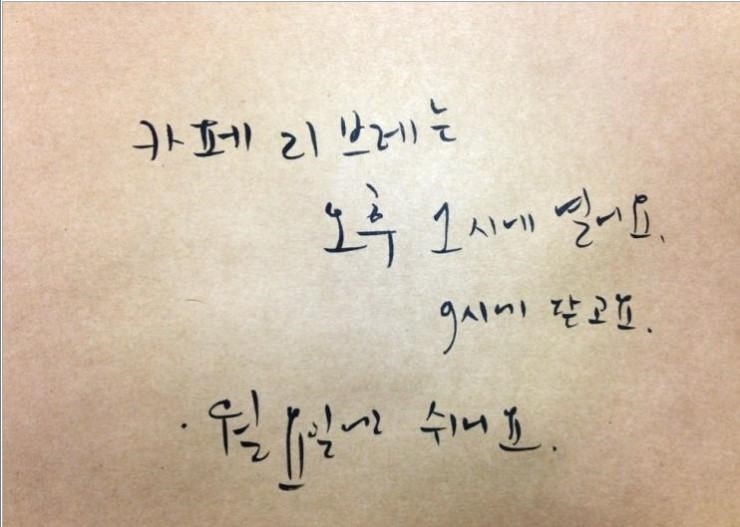 카페 리브레는
오후 1시에 열어요.
9시에 닫고요.
· 월요일에는 쉬어요.